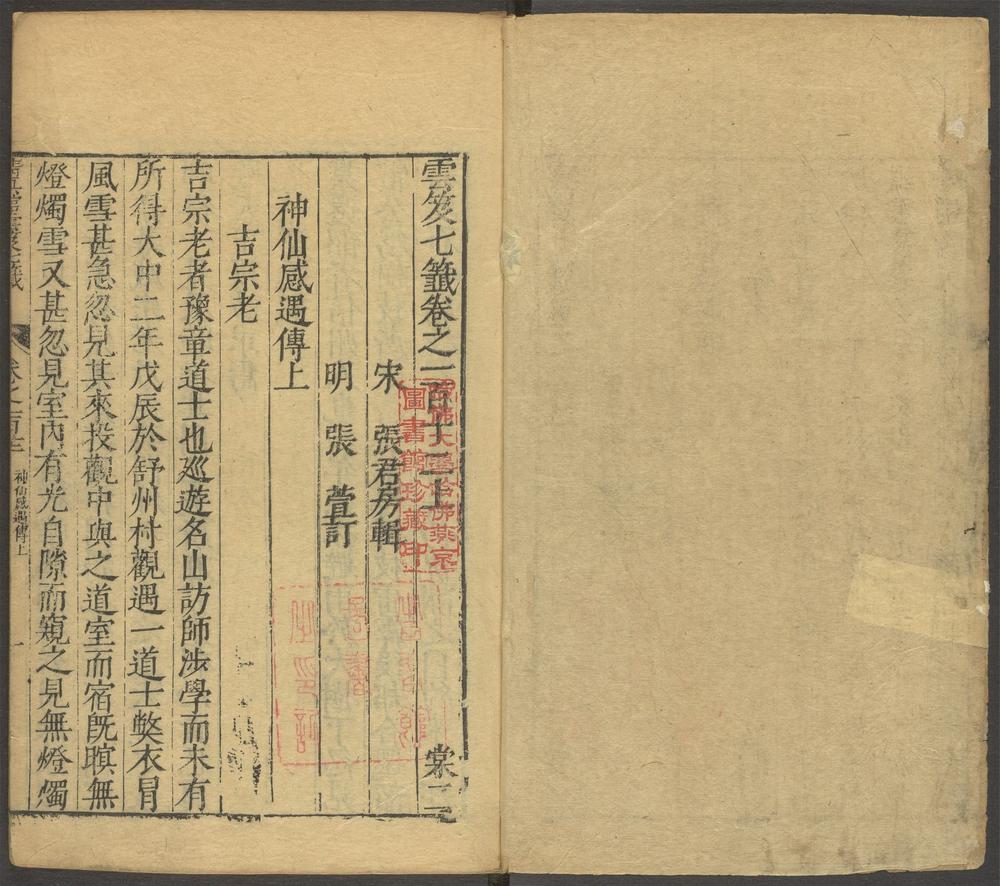 雲笈七籤卷之一百十二上 棠二
宋 張君房輯
明 張 萱訂
神仙感遇傳上
吉宗老
吉宗老者豫章道士也巡遊名山訪師涉學而未有
所得大中二年戊辰於舒州村觀遇一道士弊衣冒
風雪甚急忽見其來投觀中與之道室而宿旣暝無
燈燭雪又甚忽見室內有光自隙而窺之見無燈燭
神仙感遇傳上
一
哈佛大學哈佛燕京
圖書館珍藏印